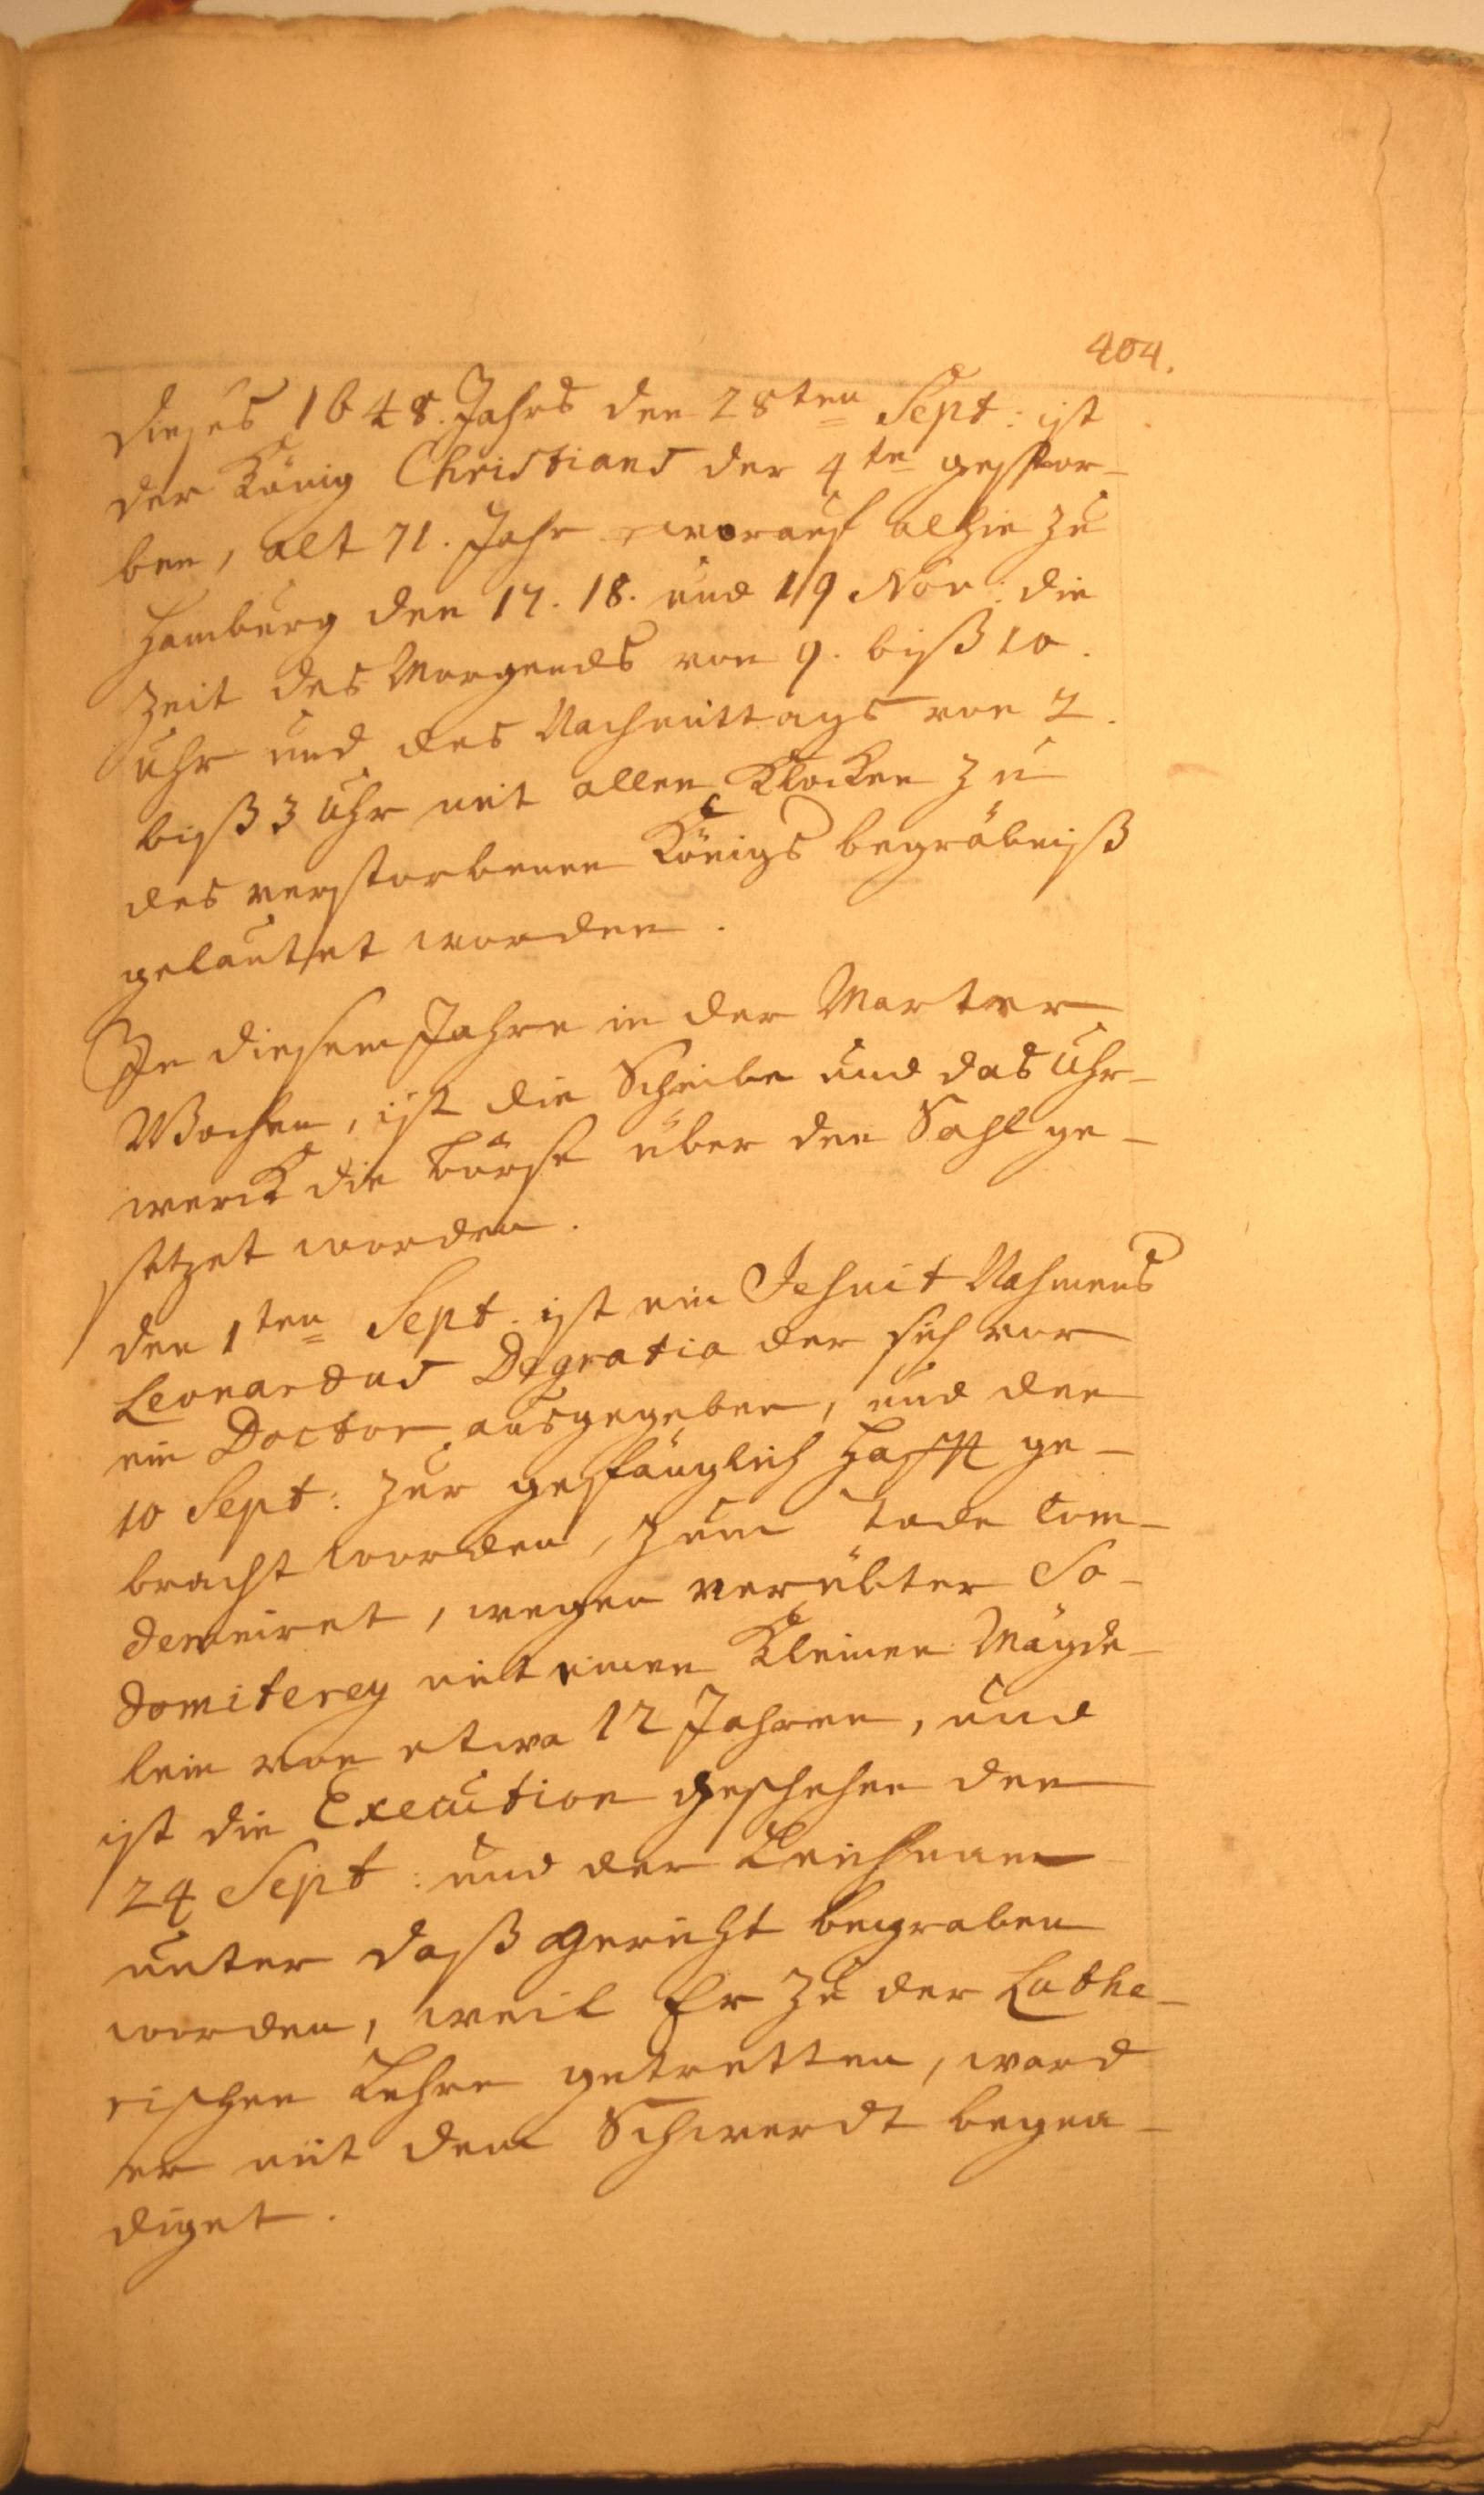 404.
dieses 1648. Jahrs den 28ten Sept: ist
der König Christians der 4te gestor-
ben, alt 71. Jahr worauf alhie zu
Hamburg den 17. 18. und 19 Nov: die
Zeit des Morgends von 9. biß 10.
Uhr und des Nachmittags von 2.
biß 3 Uhr mit allen Klocken zu
des verstorbenen Königs begräbniß
gelautet worden.
In diesem Jahre in der Marter
Wochen, ist die Scheibe und das Uhr-
werck die börse über den Sahl ge-
setzet worden.
den 1ten Sept. ist ein Jesuit Nahmens
Leonardus Degratia der sich vor
ein Doctor ausgegeben, und den
10 Sept: zur gefänglich Hafft ge-
bracht worden, zum Tode Com-
demniret, wegen verübter So-
domiterey mit einen Kleinen Mägde-
lein von etwa 12 Jahren, und
ist die Execution geschehen den
24 Sept: und der Leichnam
unter daß gericht begraben
worden, weil Er zu der Luthe-
rischen Lehre getretten, ward
er mit dem Schwerdt begna-
diget.